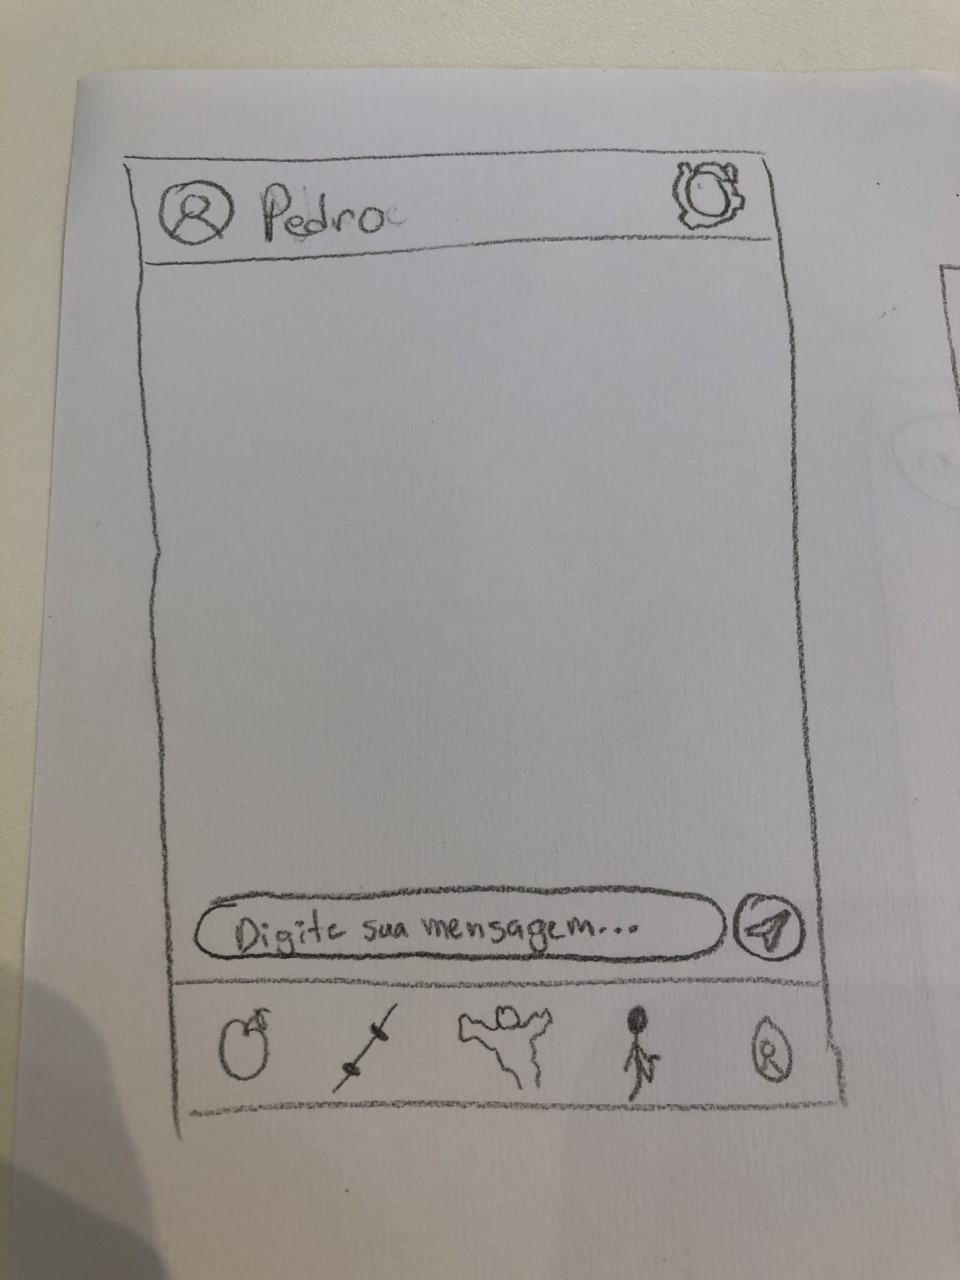 Pedro
Digite sua mensagem...